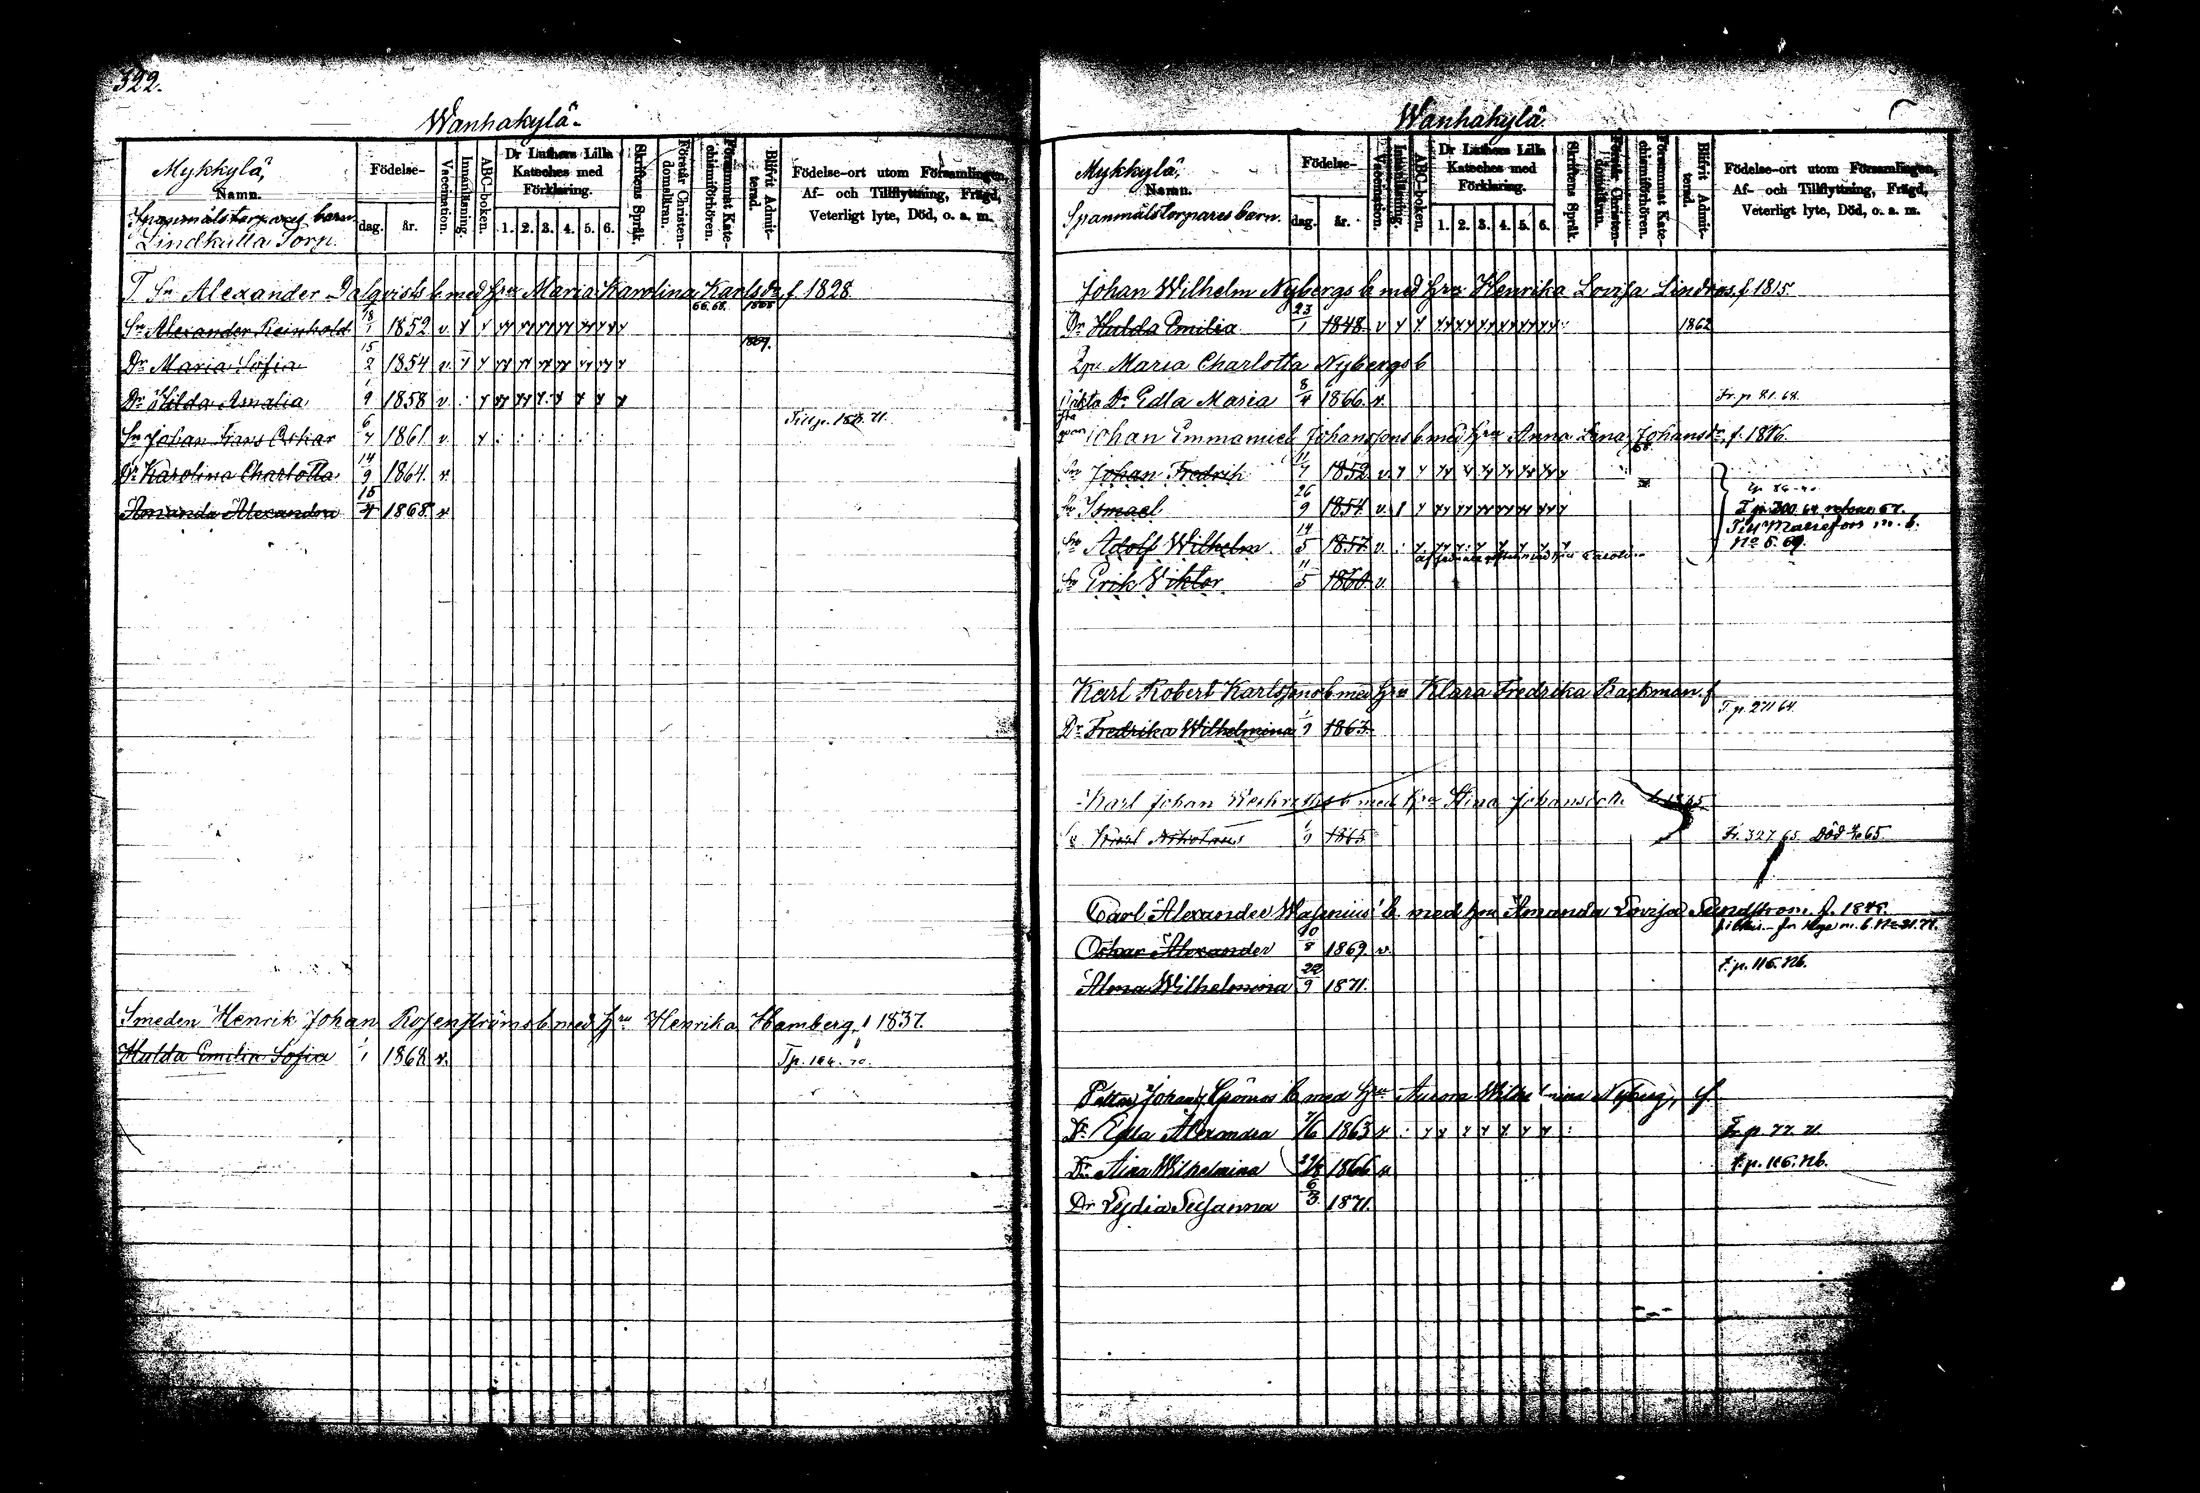 322.
Wanhakylä.
Mykkylä,
Namn.
Spanmålstorpares barn.
Lindkulla Torp.
Födelse-
dag. år.
Vaccination.
Innanläsning.
ABC-boken.
Dr Luthers Lilla
Kateches med
Förklaring.
1. 2. 3. 4. 5. 6.
Skriftens Språk.
Förstår Christen-
domsläran.
Försummat Kate-
chismiförhören.
Blifvit Admit-
terad.
Födelse-ort utom Församlingen,
Af- och Tillflyttning, Frägd,
Veterligt lyte, Död, o. a. m.
T Sn Alexander Dalqvists b. med Hru Maria Karolina Karlsdr f 1828
Sn Alexander Reinhold 18/1 1852 v. 66. 68. 1868
Dr Maria Sofia 15/2 1854 v. 1869.
Dr Hilda Amalia 1/9 1858 v.
Sn Johan Frans Oskar 6/7 1861 v.
Dr Karolina Charlotta 14/9 1864 v.
Amanda Alexandra 15/4 1868 v.
Smeden Henrik Johan Rosenströms b. med Hru Henrika Hamberg f 1837.
Hulda Emilia Sofia 1/1 1868 v.
Wanhakylä.
Mykkylä,
Namn.
Spanmålstorpares barn.
Födelse-
dag. år.
Vaccination.
Innanläsning.
ABC-boken.
Dr Luthers Lilla
Kateches med
Förklaring.
1. 2. 3. 4. 5. 6.
Skriftens Språk.
Förstår Christen-
domsläran.
Försummat Kate-
chismiförhören.
Blifvit Admit-
terad.
Födelse-ort utom Församlingen,
Af- och Tillflyttning, Frägd,
Veterligt lyte, Död, o. a. m.
Johan Wilhelm Nybergs b med Hru Henrika Lovisa Lindros, f. 1815
Dr Hulda Emilia 23/1 1848 v 1862
Maria Charlotta Nybergs b
oäkta Dr Edla Maria 8/4 1866 v. Fr. p 81. 68.
Johan Emmanuel Johanssons b med Hru Anna Lena Johansdr, f.
Sn Johan Fredrik 11/7 1852 v.
Sn Ismael 26/9 1854 v.
Sn Adolf Wilhelm 14/5 1857 v.
Till Mariefors m. b.
No 5. 69.
Sn Erik Viktor 11/5 1860 v.
Karl Robert Karlssons b med Hru Klara Fredrika Backman. f
Dr Fredrika Wilhelmina 1/9 1863 T. p. 271 64.
Karl Johan b med Hru Stina Johansdotter
1/9 1865 Fr. 327 65. Död 65.
Carl Alexander Wasenius' b. med Hru Amanda Lovisa Sundström. f.
Oskar Alexander 10/8 1869. v.
Alma Wilhelmina 22/9 1871. t. p. 116. 76.
Petter Johan b med Hru Aurora Wilhelmina Nyberg, f
Dr Edla Alexandra 7/6 1863 v
Dr Aina Wilhelmina 1866 v t. p. 116. 76.
Dr Lydia Susanna 6/3 1871.